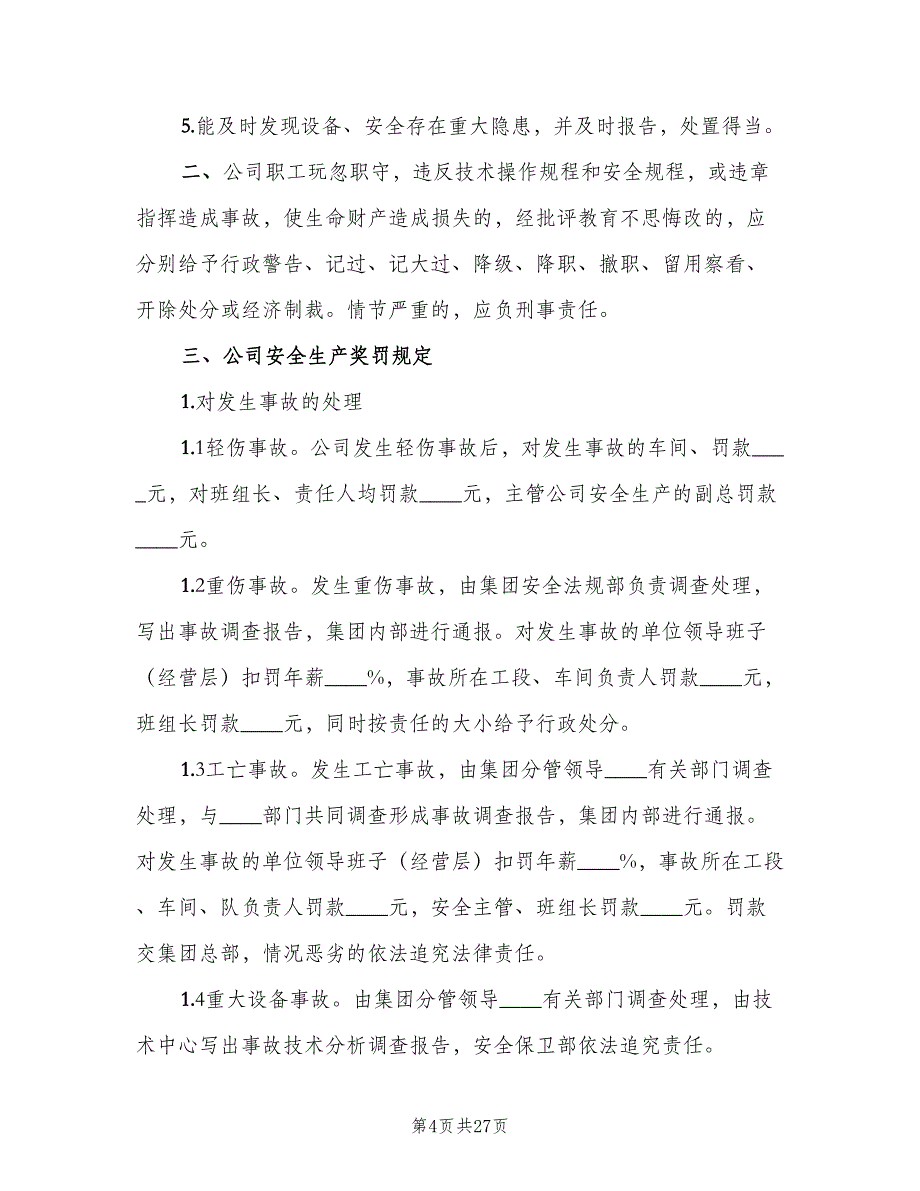 5.能及时发现设备、安全存在重大隐患，并及时报告，处置得当。
二、公司职工玩忽职守，违反技术操作规程和安全规程，或违章
指挥造成事故，使生命财产造成损失的，经批评教育不思悔改的，应
分别给予行政警告、记过、记大过、降级、降职、撤职、留用察看、
开除处分或经济制裁。情节严重的，应负刑事责任。
三、公司安全生产奖罚规定
1.对发生事故的处理
1.1轻伤事故。公司发生轻伤事故后，对发生事故的车间、罚款___
_元，对班组长、责任人均罚款____元，主管公司安全生产的副总罚款
____元。
1.2重伤事故。发生重伤事故，由集团安全法规部负责调查处理，
写出事故调查报告，集团内部进行通报。对发生事故的单位领导班子
（经营层）扣罚年薪____%，事故所在工段、车间负责人罚款____元，
班组长罚款____元，同时按责任的大小给予行政处分。
1.3工亡事故。发生工亡事故，由集团分管领导____有关部门调查
处理，与____部门共同调查形成事故调查报告，集团内部进行通报。
对发生事故的单位领导班子（经营层）扣罚年薪____%，事故所在工段
、车间、队负责人罚款____元，安全主管、班组长罚款____元。罚款
交集团总部，情况恶劣的依法追究法律责任。
1.4重大设备事故。由集团分管领导____有关部门调查处理，由技
术中心写出事故技术分析调查报告，安全保卫部依法追究责任。
第4页共27页